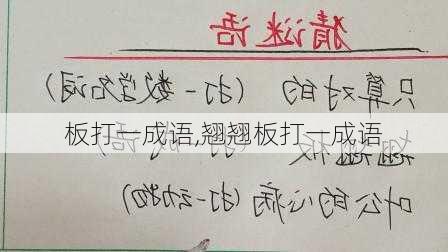 猜谜语
只算对的 (打一数学名词)
板打一成语,翘翘板打一成语
翘翘板 (打一成语)
叶公的心病 (打一动物)